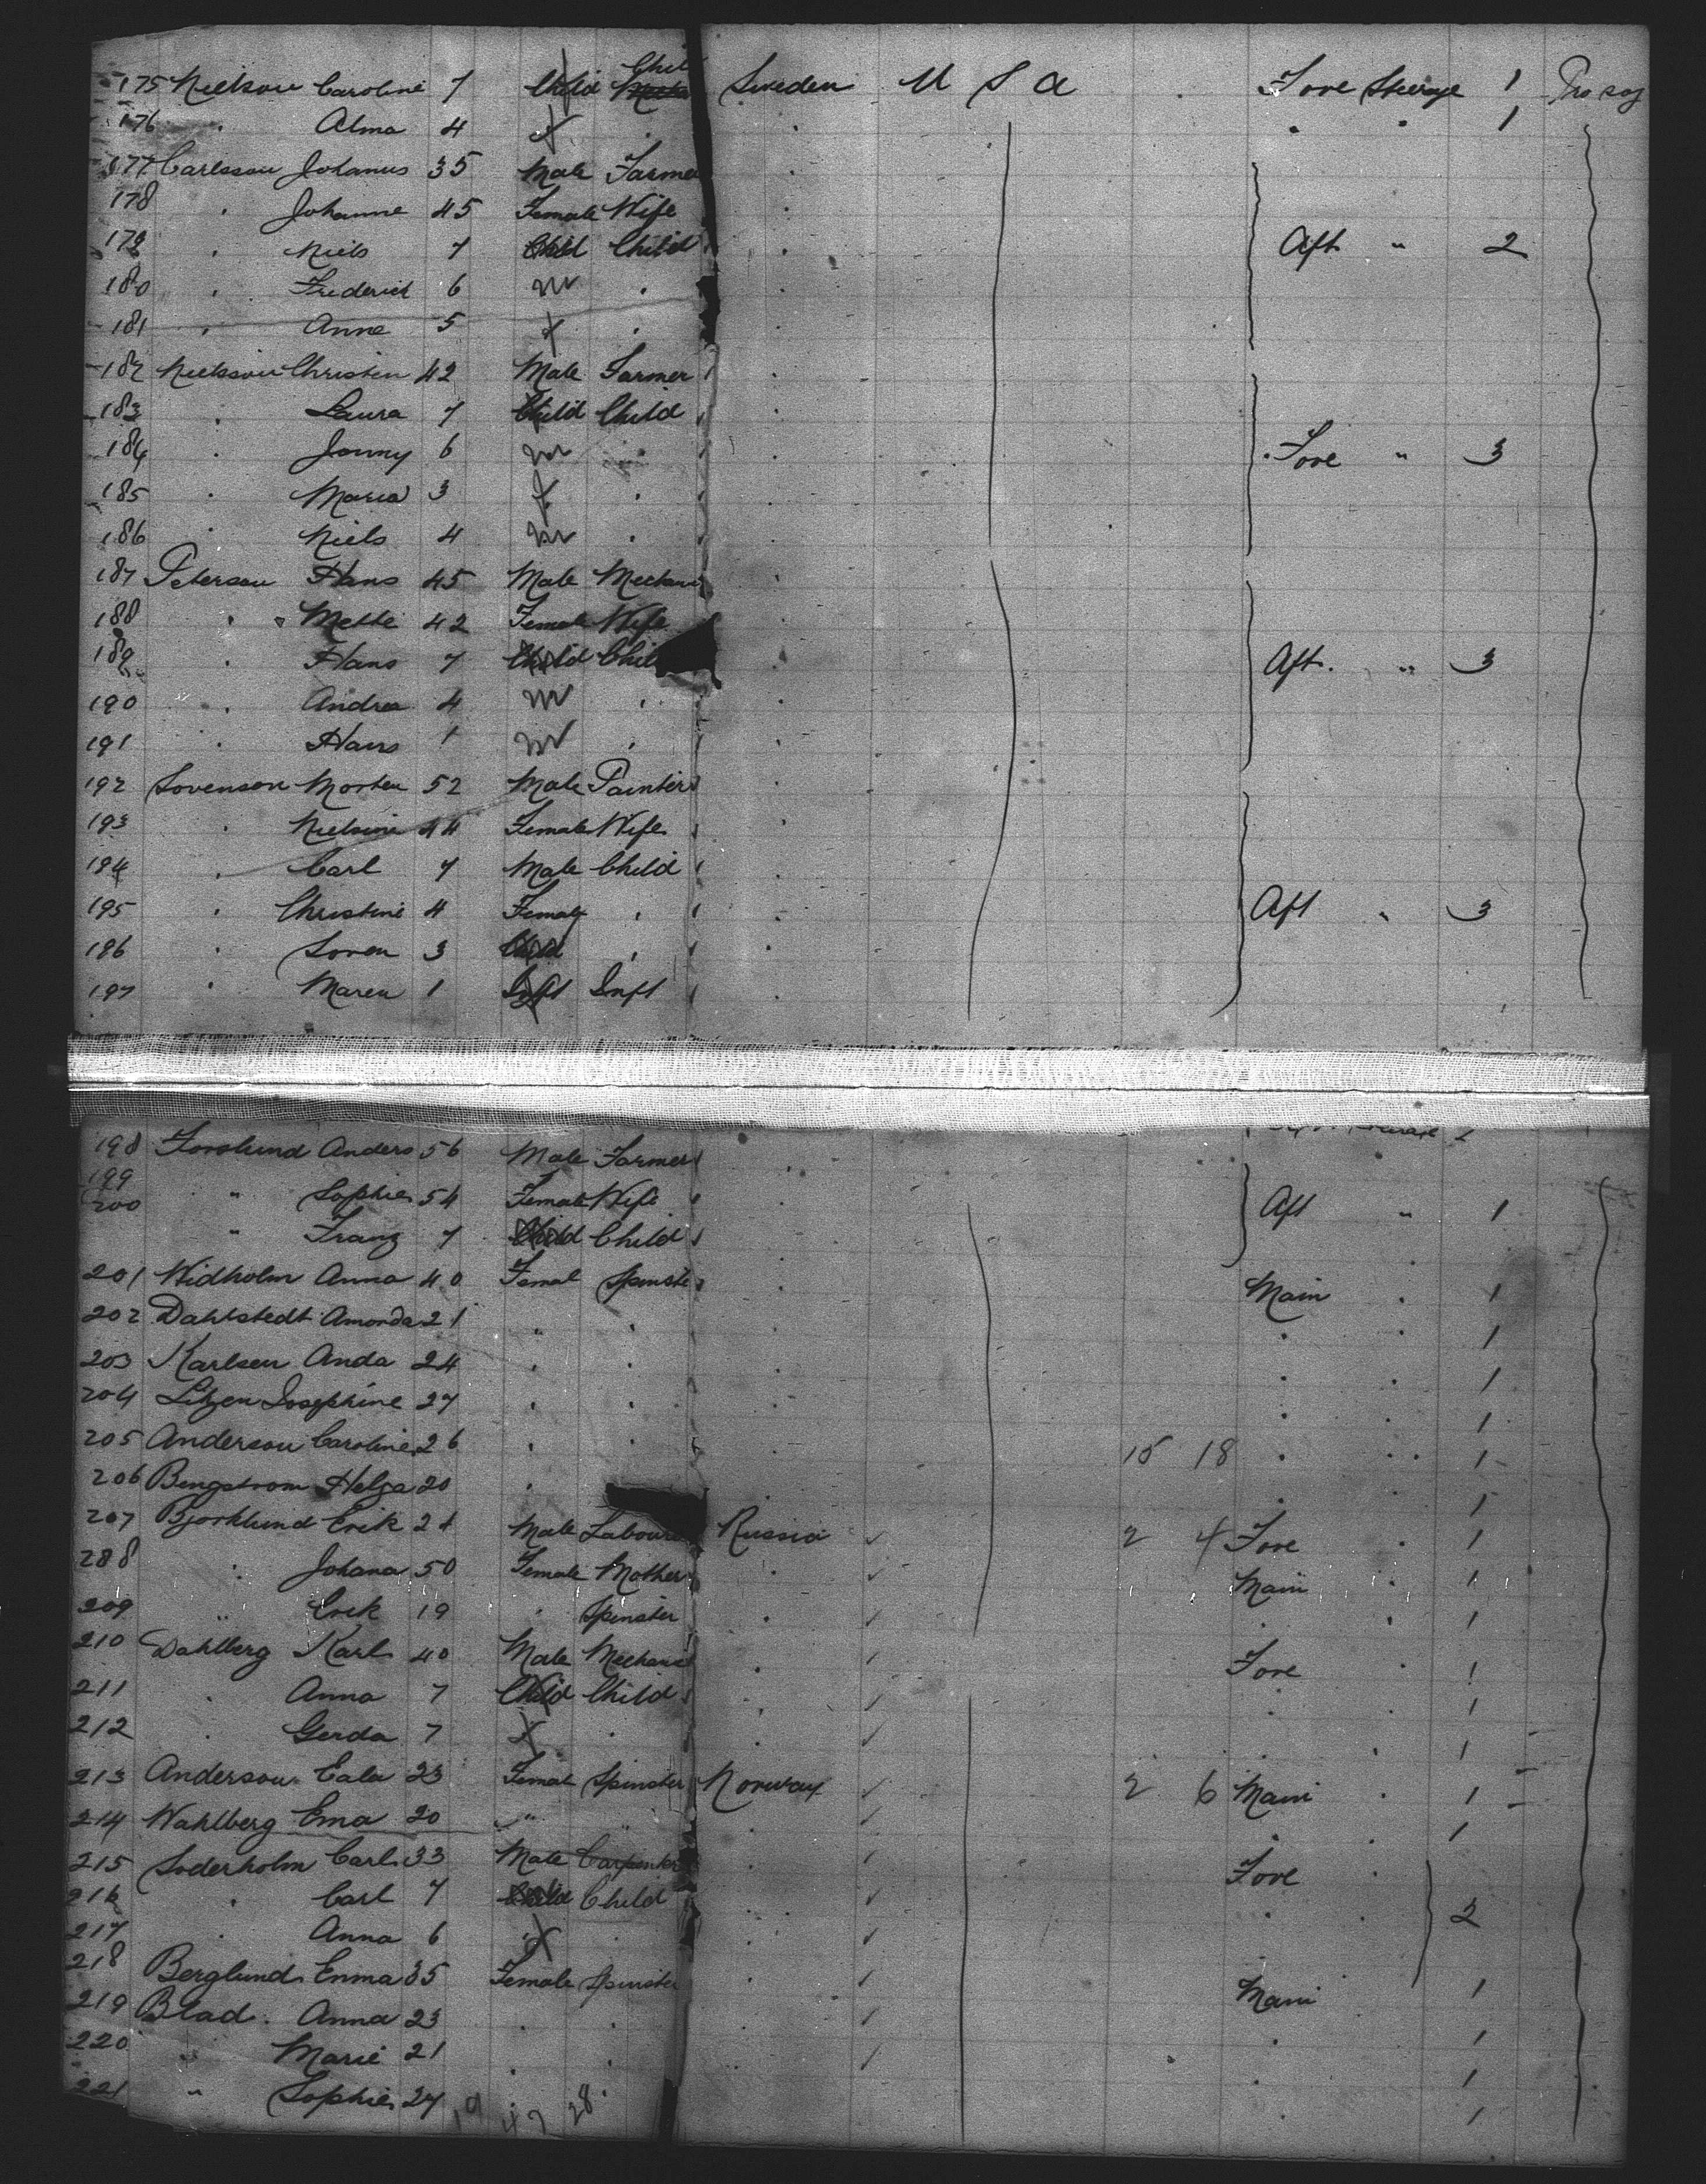 175 Nielson Caroline 7 Child Child Sweden U S A Fore Steerage 1
176 " Alma 4 " " " 1
177 Carlsson Johannes 35 Male Farmer "
178 " Johanne 45 Female Wife "
179 " Niels 7 Child Child " Aft " 2
180 " Frederick 6 m " "
181 " Anne 5 "
182 Nielson Christen 42 Male Farmer "
183 " Laura 7 Child Child "
184 " Jonny 6 m " " Fore " 3
185 " Maria 3 " "
186 " Niels 4 m " "
187 Peterson Hans 45 Male "
188 " Mette 42 Female Wife "
189 " Hans 7 Child Chil " Aft. " 3
190 " Andrea 4 m " "
191 " Hans 1 m " "
192 Sorenson Morten 52 Male Painter "
193 " Nielsine 44 Female Wife "
194 " Carl 7 Male Child "
195 " Christine 4 Female " " Aft " 3
196 " Soren 3 Child " "
197 " Maren 1 Inft Inft "
198 Forslund Anders 56 Male Farmer "
199 " Sophie 54 Female Wife " Aft " 1
200 " Franz 7 Child Child "
201 Widholm Anna 40 Femal Spinste " Main " 1
202 Dahlstedt Amanda 21 " " " " " 1
203 Karlsen Anda 24 " " " " " 1
204 Josephine 27 " " " " " 1
205 Anderson Caroline 26 " " " 15 18 " " 1
206 Bengstrom Helga 20 " " " 1
207 Bjorklund Erik 24 Male Laboure Russia 2 4 Fore " 1
288 " Johana 50 Female Mother " Main " 1
209 " Erik 19 " Spinster " " " 1
210 Dahlberg Karl 40 Male Mechanic " Fore " 1
211 " Anna 7 Child Child " " " 1
212 " Gerda 7 " " " " 1
213 Anderson Eala 23 Femal Spinster Norway 2 6 Main " 1
214 Wahlberg Ema 20 " " " " " 1
215 Soderholm Carl 33 Male Carpenter " Fore
216 " Carl 7 Child Child " " " 2
217 " Anna 6 " " "
218 Berglund Emma 35 Female Spinster " Main 1
219 Blad Anna 23 " " " " 1
220 " Marie 21 " " " " 1
221 " Sophie 24 " " " 1
19 42 28